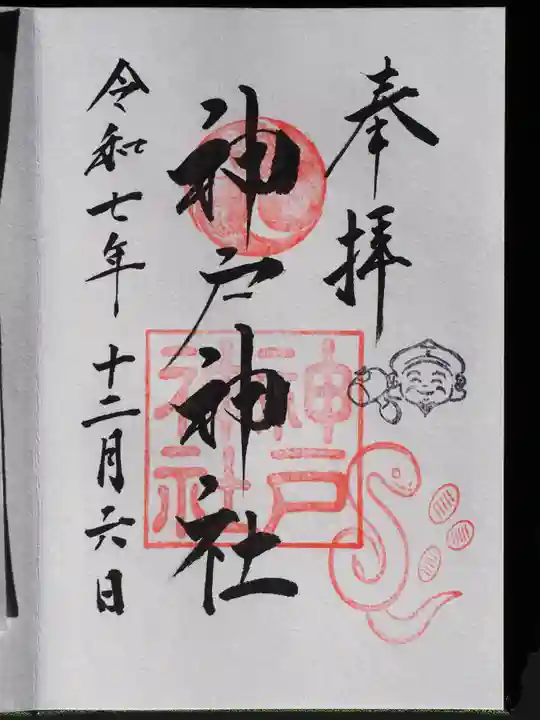 奉拝
神戸神社
神戸
神社
令和七年十二月六日